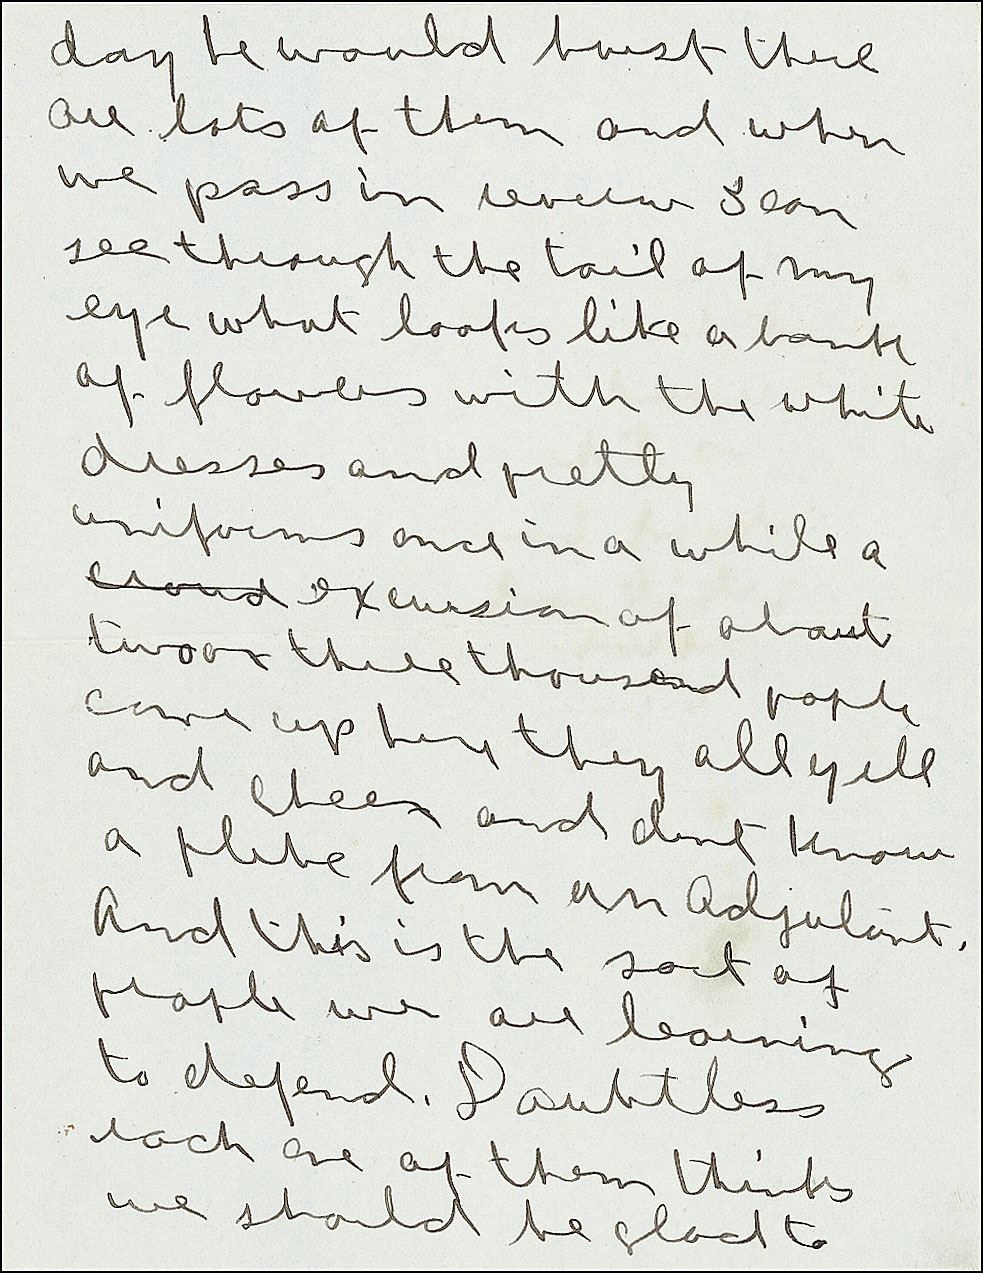 day he would burst there
are lots of them and when
we pass in review I can
see through the tail of my
eye what looks like a bank
of flowers with the white
dresses and pretty
uniforms once in a while a
crowd excursion of about
two or three thousand people
come up here, they all yell
and cheer and dont know
a plebe from an Adjutant.
And this is the sort of
people we are learning
to defend. Doubtless
each one of them thinks
we should be glad to